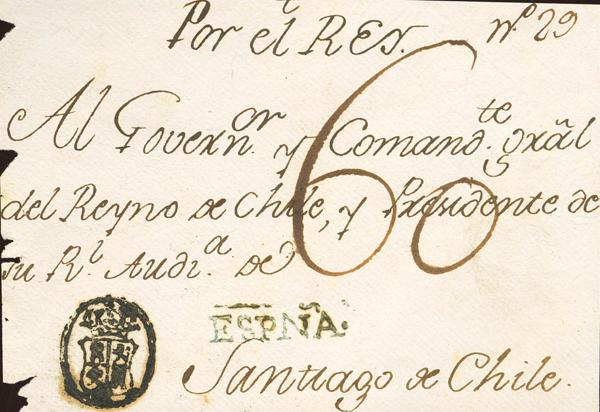 Por el REY. nº 29
60
Al Governor. y Comandte. grãl
del Reyno de Chile, y Presidente de
su Rl. Audia. de
ESPÑA.
Santiago de Chile.